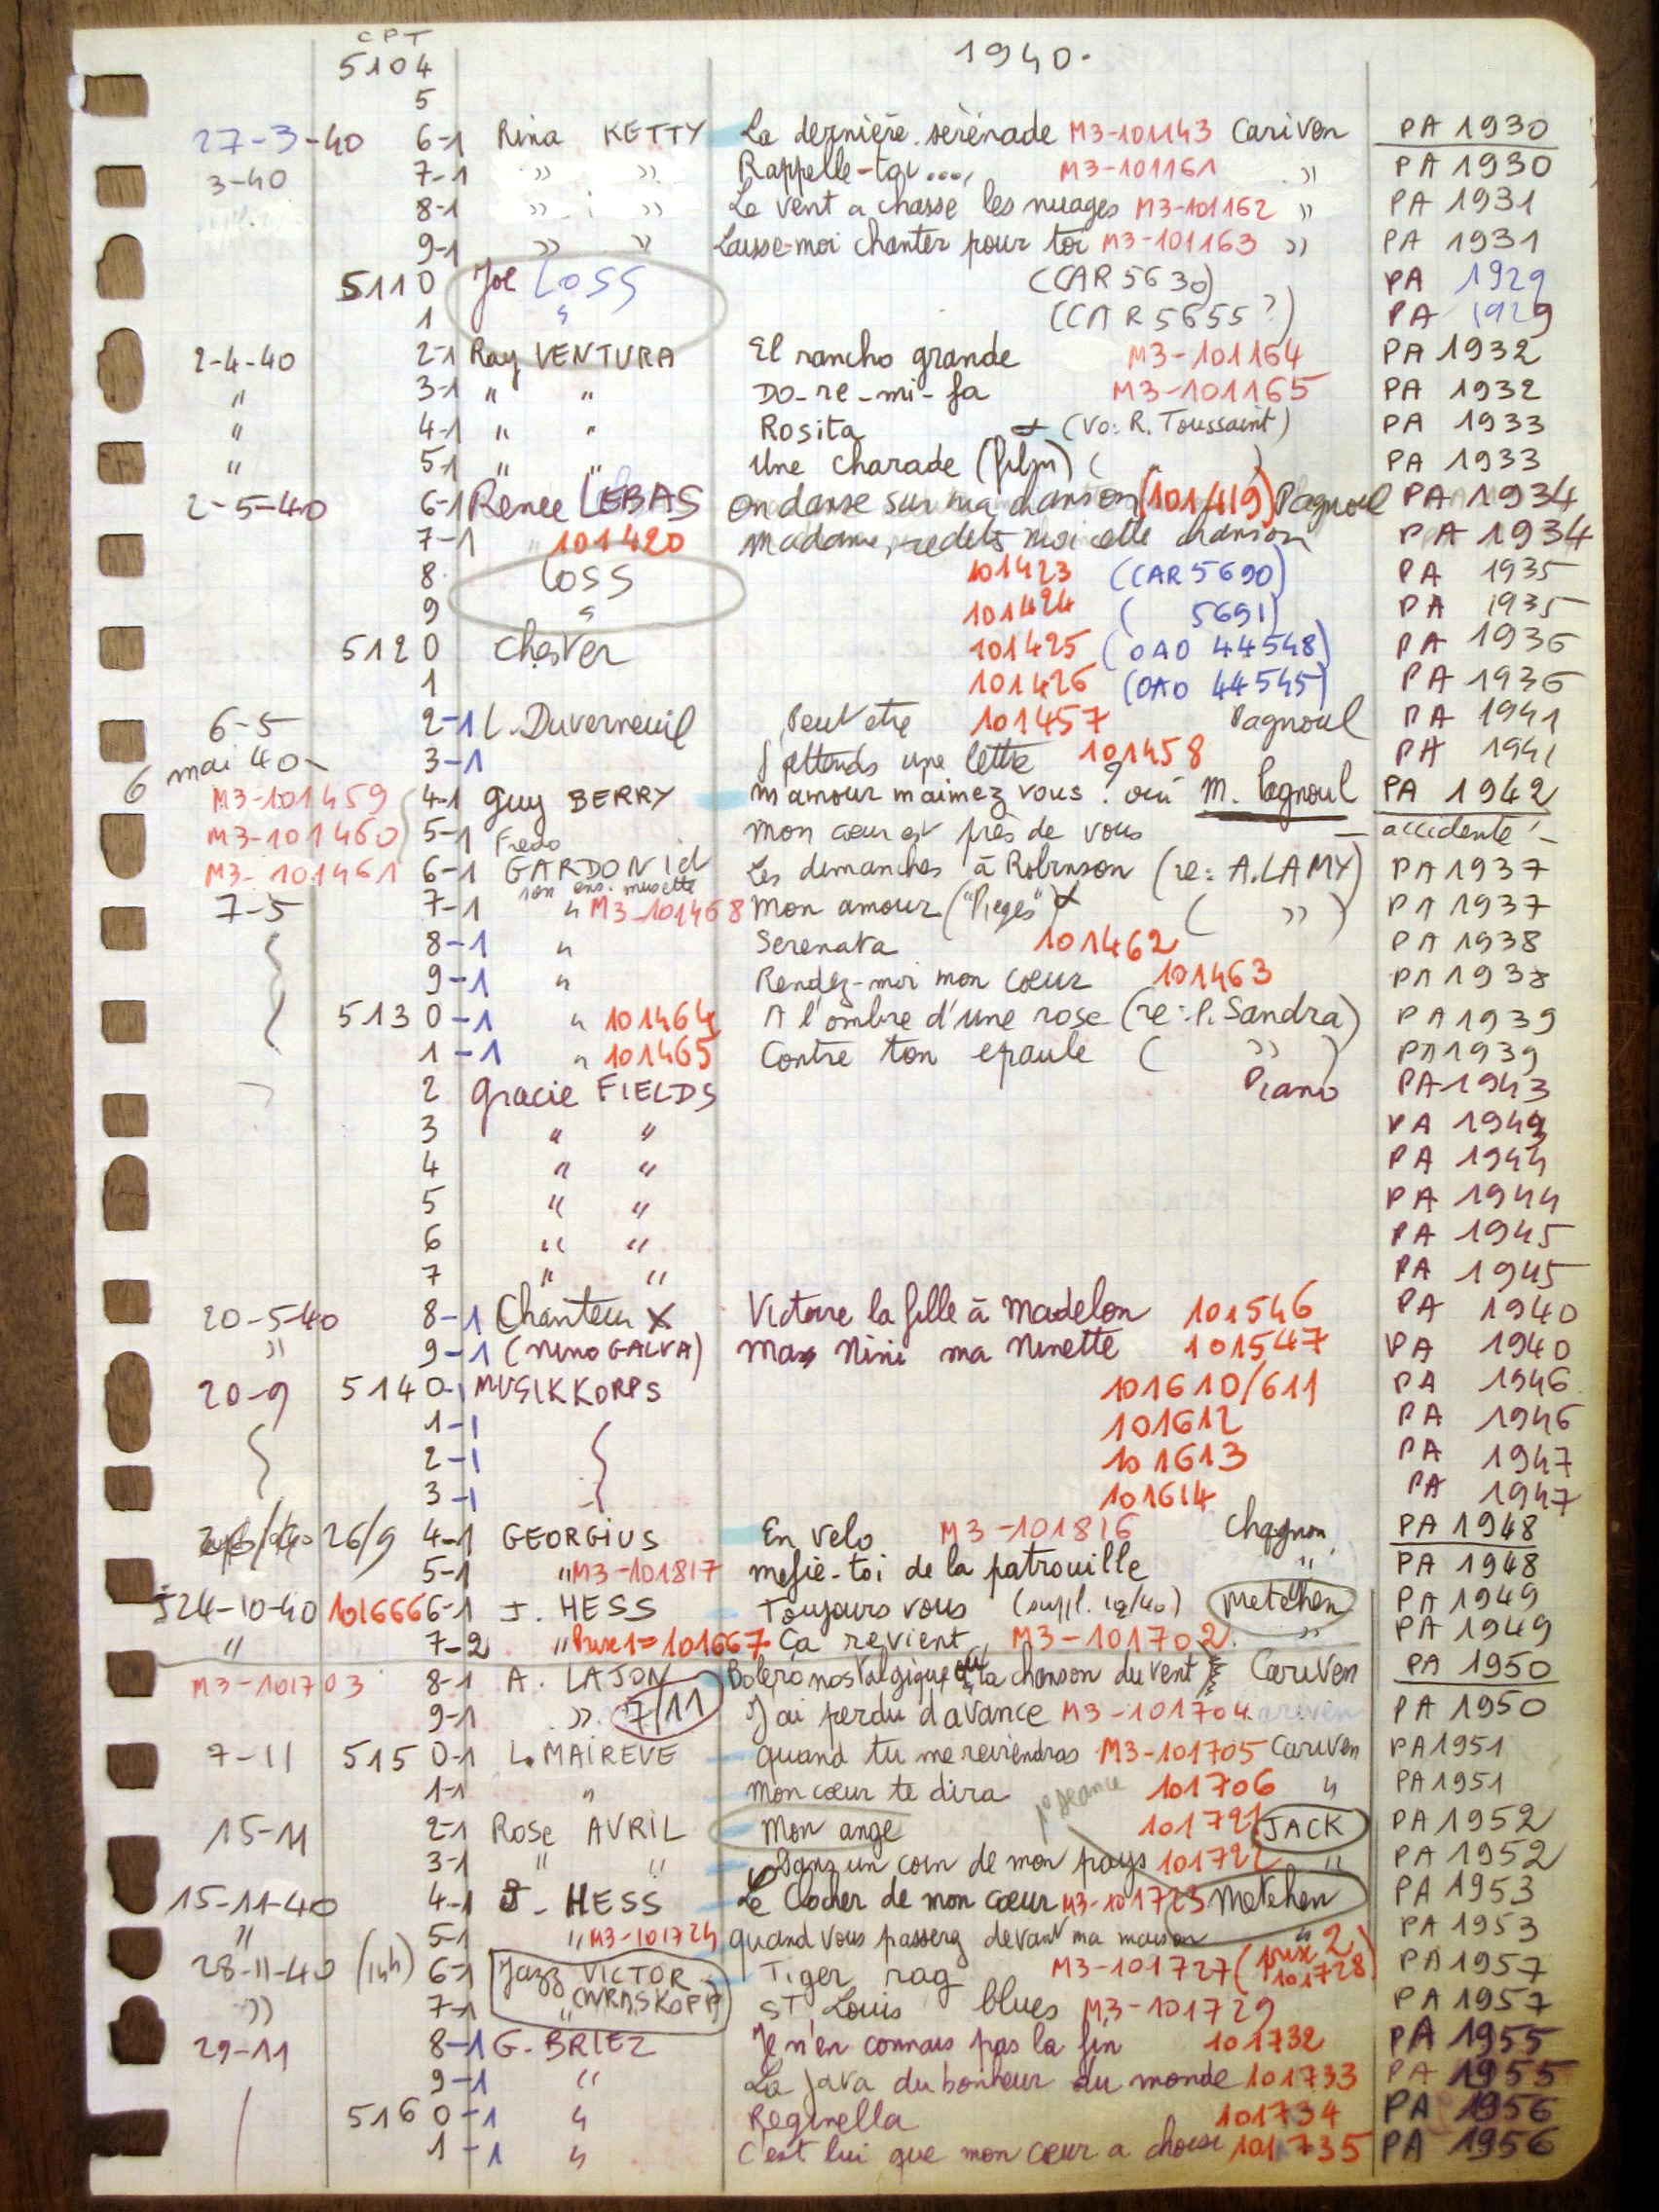 CPT
5104 1940.
5
27-3-40 6-1 Rina KETTY La dernière sérénade M3-101143 Cariven PA 1930
3-40 7-1 " " Rappelle-toi .... M3-101161 " PA 1930
8-1 " " Le vent a chassé les nuages M3-101162 " PA 1931
9-1 " " Laisse-moi chanter pour toi M3-101163 " PA 1931
5110 Joe LOSS (CAR 5630) PA 1929
1 " (CAR 5655?) PA 1929
2-4-40 2-1 Ray VENTURA El rancho grande M3-101164 PA 1932
" 3-1 " " Do-re-mi-fa M3-101165 PA 1932
" 4-1 " " Rosita (vo: R. Toussaint) PA 1933
" 5-1 " " Une charade (film) ( " ) PA 1933
2-5-40 6-1 Renee LEBAS On danse sur ma chanson (101419) Pagnoul PA 1934
7-1 " 101420 Madame, redets moi cette chanson PA 1934
8 LOSS 101423 (CAR 5690) PA 1935
9 " 101424 ( 5691) PA 1935
5120 Chester 101425 (OAO 44548) PA 1936
1 101426 (OAO 44545) PA 1936
6-5 2-1 L. Duverneuil Peut etre 101457 Pagnoul PA 1941
6 mai 40 3-1 J'attends une lettre 101458 PA 1941
M3-101459 4-1 Guy BERRY M'amour m'aimez vous ? oui M. Pagnoul PA 1942
M3-101460 5-1 Mon cœur est près de vous - accidenté -
M3-101461 6-1 Fredo GARDONI et Les dimanches à Robinson (re: A. LAMY) PA 1937
son ens. musette
7-5 7-1 " M3-101468 Mon amour ("Pieges") ( " ) PA 1937
8-1 " Serenata 101462 PA 1938
9-1 " Rendez-moi mon cœur 101463 PA 1938
5130-1 " 101464 A l'ombre d'une rose (re: P. Sandra) PA 1939
1-1 " 101465 Contre ton epaule ( " ) PA 1939
2 Gracie FIELDS Piano PA 1943
3 " " PA 1943
4 " " PA 1944
5 " " PA 1944
6 " " PA 1945
7 " " PA 1945
20-5-40 8-1 Chanteur X Victoire la fille à Madelon 101546 PA 1940
" 9-1 (Nino GALVA) Ma Nini ma Ninette 101547 PA 1940
20-9 5140-1 MUSIKKORPS 101610/611 PA 1946
1-1 101612 PA 1946
2-1 101613 PA 1947
3-1 101614 PA 1947
26/9 4-1 GEORGIUS En velo M3-101816 Chagnon PA 1948
5-1 " M3-101817 mefie-toi de la patrouille " PA 1948
24-10-40 101666 6-1 J. HESS Toujours vous (suppl. 12/40) Metehen PA 1949
" 7-2 " Prise 1=101667 Ca revient M3-101702 " PA 1949
M3-101703 8-1 A. LAJON Boléro nostalgique ou la chanson du vent Cariven PA 1950
9-1 " 7/11 J'ai perdu d'avance M3-101704 Cariven PA 1950
7-11 5150-1 L. MAIREVE quand tu me reviendras M3-101705 Cariven PA 1951
1-1 " Mon cœur te dira 101706 " PA 1951
1e seance
15-11 2-1 Rose AVRIL Mon ange 101721 JACK PA 1952
3-1 " " Dans un coin de mon pays 101722 " PA 1952
15-11-40 4-1 J. HESS Le Clocher de mon cœur M3-101723 Metehen PA 1953
" 5-1 " M3-101724 quand vous passerez devant ma maison " PA 1953
28-11-40 (14h) 6-1 Jazz VICTOR Tiger rag M3-101727 (prise 2 101728) PA 1957
" 7-1 " ST Louis blues M3-101729 PA 1957
29-11 8-1 G. BRIEZ Je n'en connais pas la fin 101732 PA 1955
9-1 " La java du bonheur du monde 101733 PA 1955
5160-1 " Reginella 101734 PA 1956
1-1 " C'est lui que mon cœur a choisi 101735 PA 1956